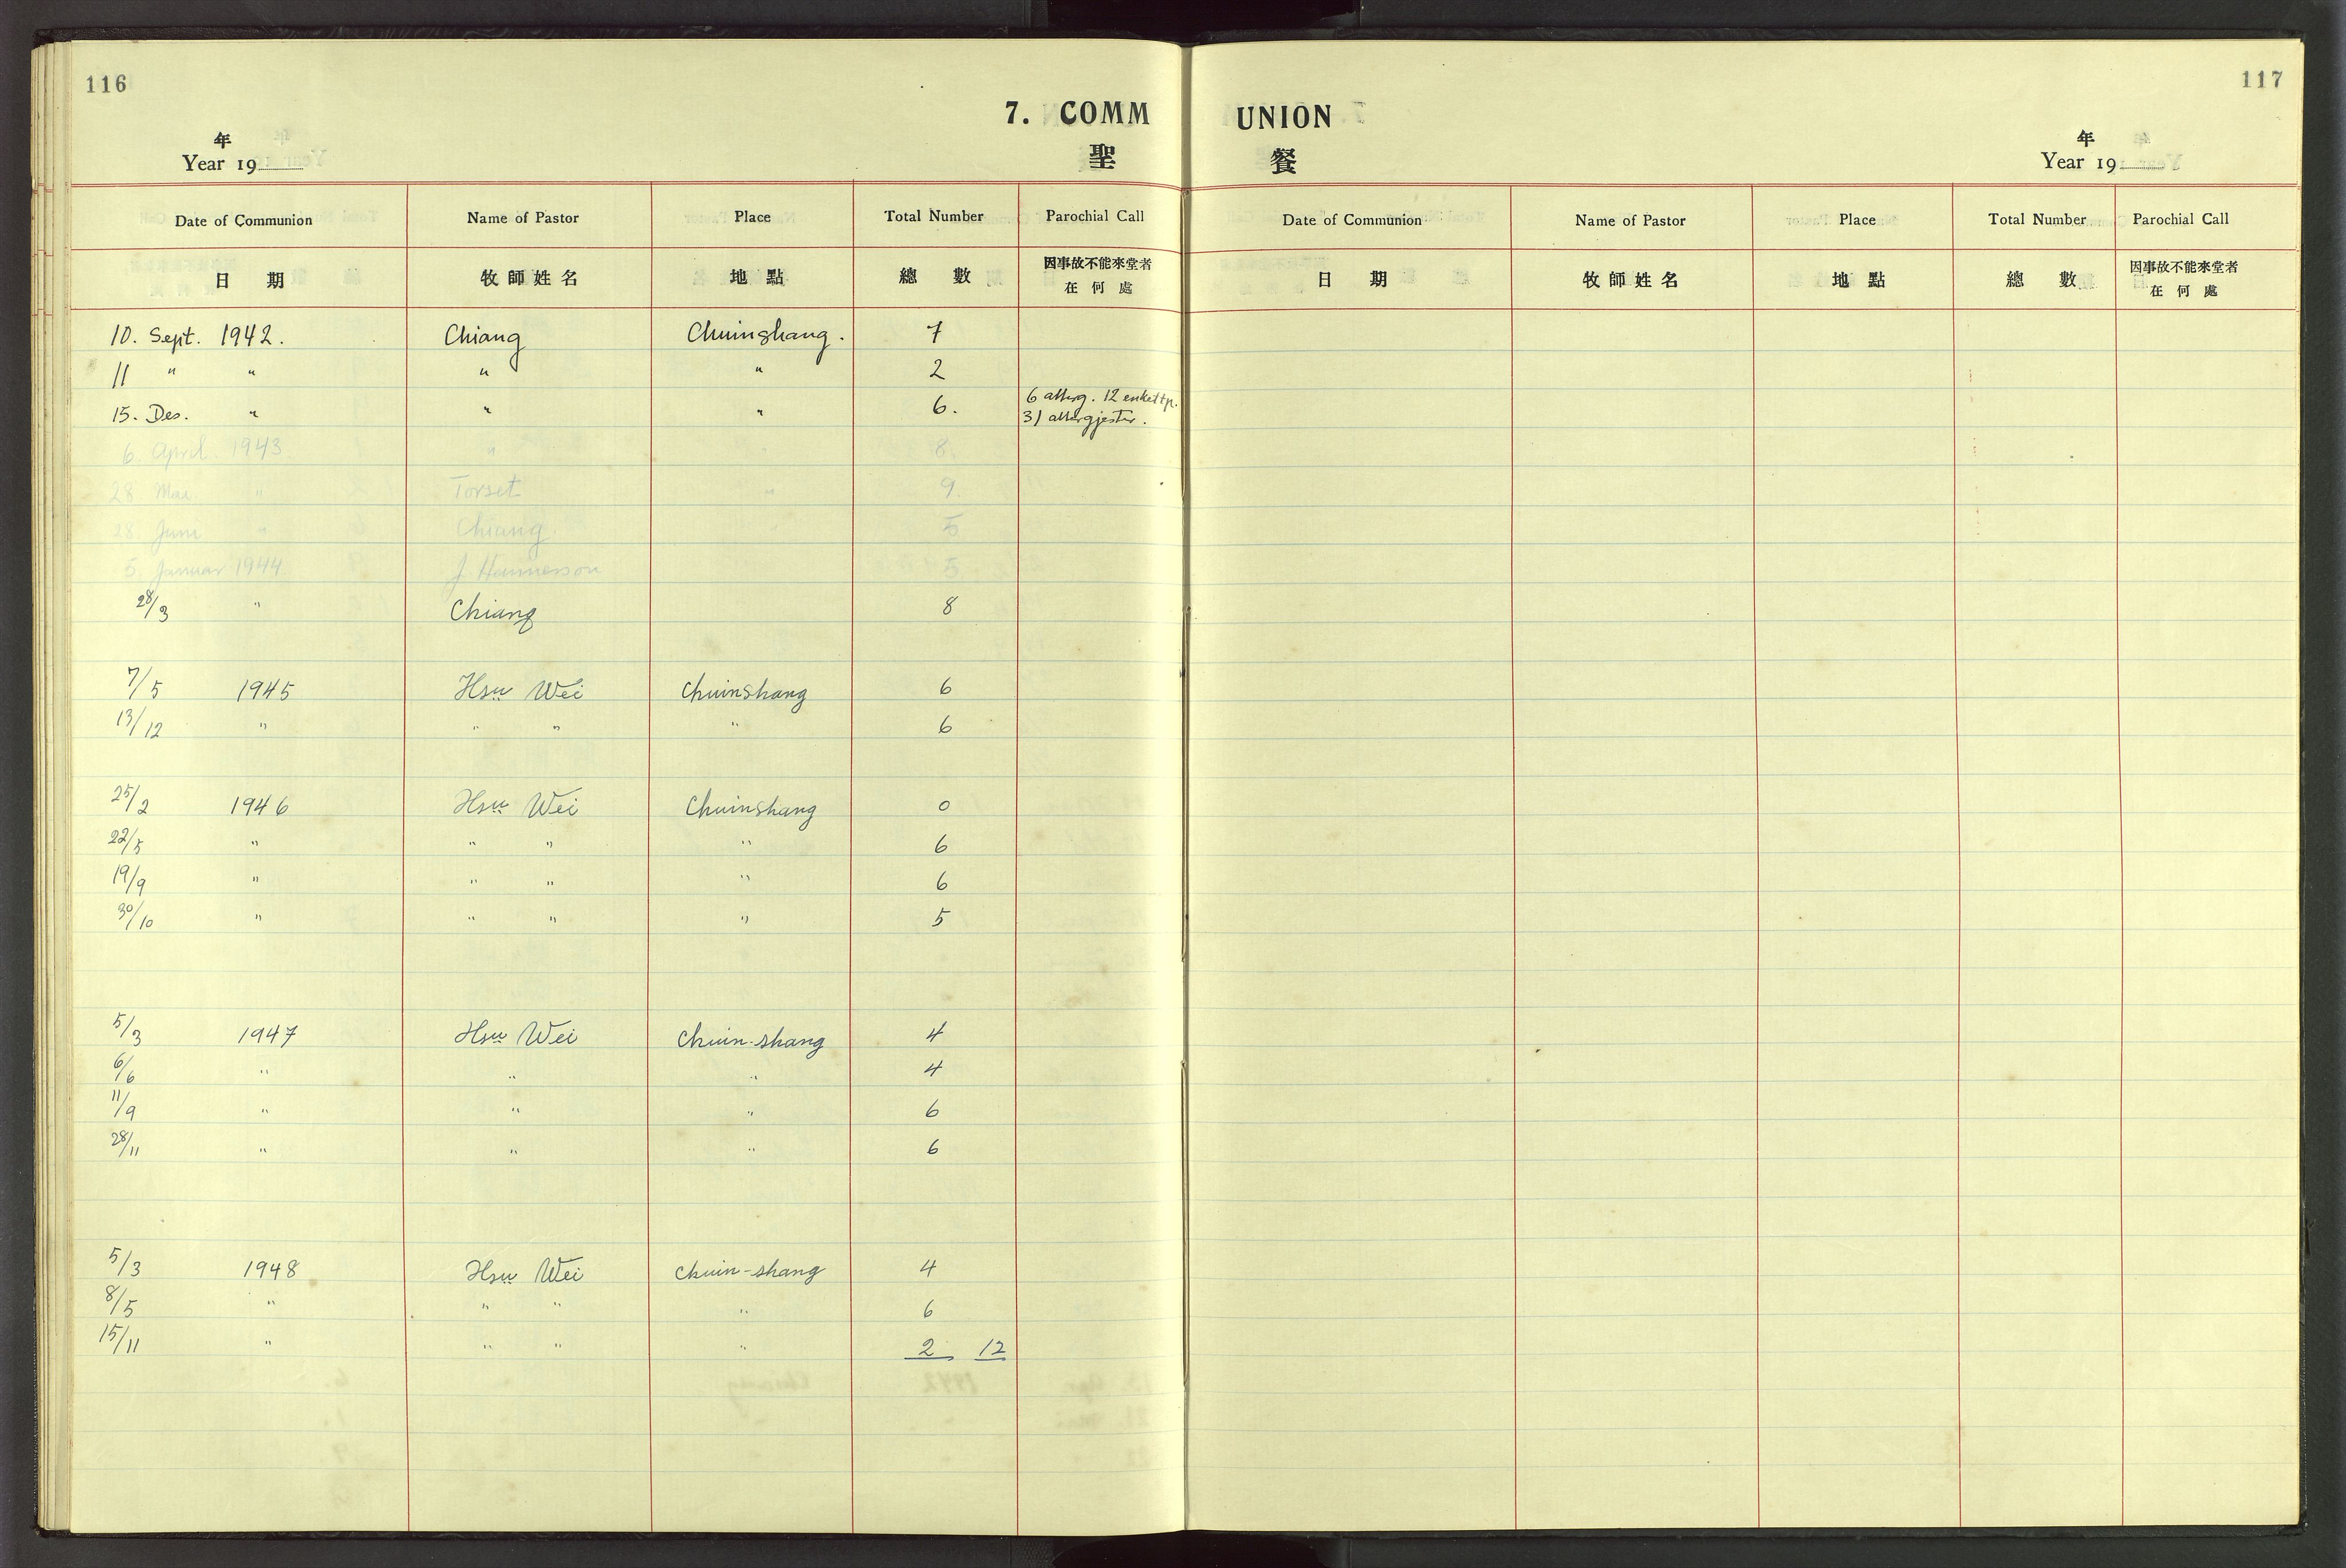 116
7. COMM
年
Year 19
聖
Date of Communion Name of Pastor Place Total Number Parochial Call
日期 牧師姓名 地點 總數 因事故不能來堂者
在何處
10. Sept. 1942. Chiang Chuinshang. 7
11 " " " " 2
15. Des. " " " 6. 6 alterg. 12 enkeltp.
31 altergjester.
6. April 1943 " 8.
28. Mai " Torset " 9.
28. Juni " Chiang 5
5. Januar 1944 J. Hannesson 5
28/3 " Chiang 8
7/5 1945 Hsu Wei Chuinshang 6
13/12 " " " " 6
25/2 1946 Hsu Wei Chuinshang 0
22/5 " " " " 6
19/9 " " " " 6
30/10 " " " " 5
5/3 1947 Hsu Wei Chuin-shang 4
6/6 " " " 4
11/9 " " " 6
28/11 " " " 6
5/3 1948 Hsu Wei Chuin-shang 4
8/5 " " " " 6
15/11 " " " " 2 12
117
UNION
年
Year 19
餐
Date of Communion Name of Pastor Place Total Number Parochial Call
日期 牧師姓名 地點 總數 因事故不能來堂者
在何處